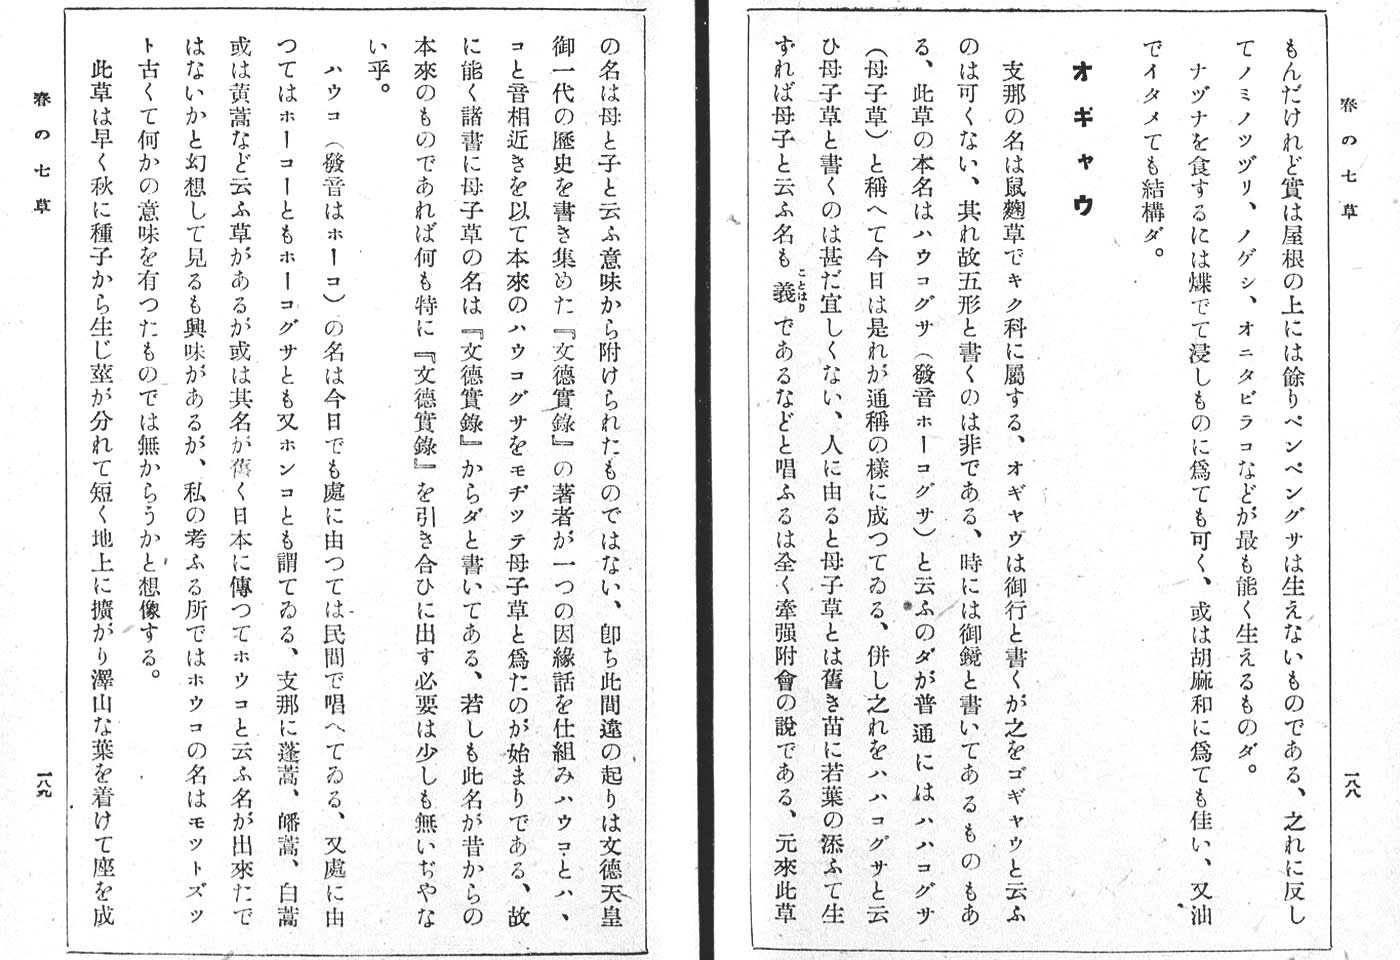 春の七草
一八八
もんだけれど實は屋根の上には餘りペンペングサは生えないものである、之れに反し
てノミノツヅリ、ノゲシ、オニタビラコなどが最も能く生えるものダ。
ナヅナを食するには煠でて浸しものに爲ても可く、或は胡麻和に爲ても佳い、又油
でイタメても結構ダ。
オギャウ
支那の名は鼠麴草でキク科に屬する、オギャウは御行と書くが之をゴギャウと云ふ
のは可くない、其れ故五形と書くのは非である、時には御鏡と書いてあるものもあ
る、此草の本名はハウコグサ（發音ホーコグサ）と云ふのダが普通にはハハコグサ
（母子草）と稱へて今日は是れが通稱の樣に成つてゐる、併し之れをハハコグサと云
ひ母子草と書くのは甚だ宜しくない、人に由ると母子草とは舊き苗に若葉の添ふて生
ずれば母子と云ふ名も義であるなどと唱ふるは全く牽强附會の說である、元來此草
ことはり
の名は母と子と云ふ意味から附けられたものではない、卽ち此間違の起りは文德天皇
御一代の歷史を書き集めた『文德實錄』の著者が一つの因緣話を仕組みハウコとハ、
コと音相近きを以て本來のハウコグサをモヂツテ母子草と爲たのが始まりである、故
に能く諸書に母子草の名は『文德實錄』からダと書いてある、若しも此名が昔からの
本來のものであれば何も特に『文德實錄』を引き合ひに出す必要は少しも無いぢやな
い乎。
ハウコ（發音はホーコ）の名は今日でも處に由つては民間で唱へてゐる、又處に由
つてはホーコーともホーコグサとも又ホンコとも謂てゐる、支那に蓬蒿、皤蒿、白蒿
或は黄蒿など云ふ草があるが或は其名が舊く日本に傳つてホウコと云ふ名が出來たで
はないかと幻想して見るも興味があるが、私の考ふる所ではホウコの名はモツトズツ
ト古くて何かの意味を有つたものでは無からうかと想像する。
此草は早く秋に種子から生じ莖が分れて短く地上に擴がり澤山な葉を着けて座を成
春の七草
一八九